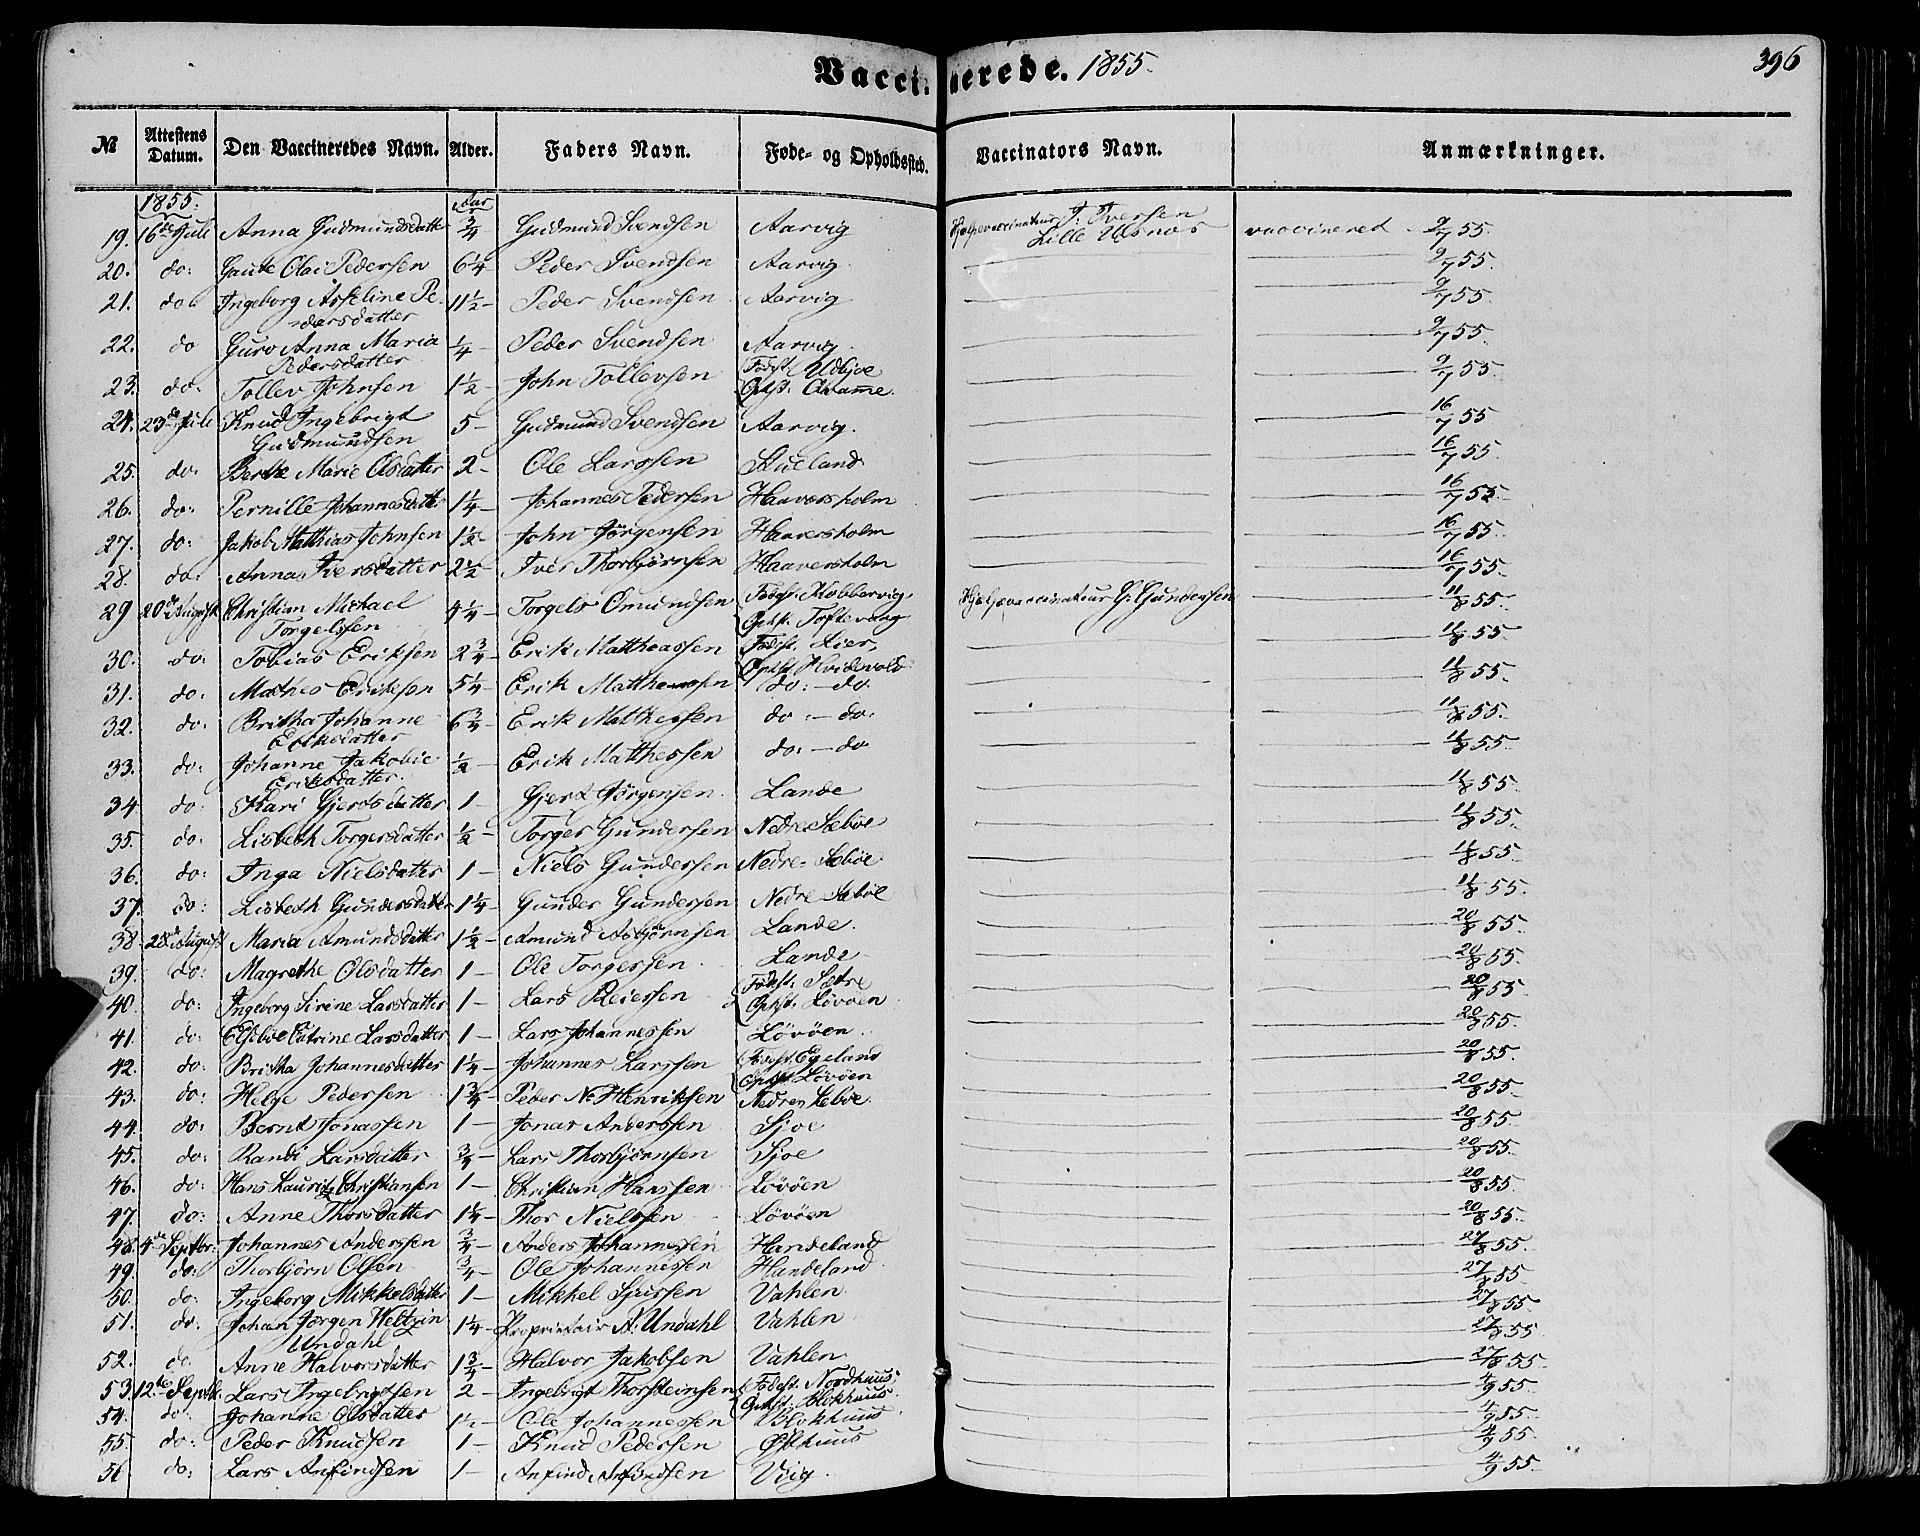 Vaccinerede. 1855.
396
№ Attestens Datum. Den Vaccineredes Navn. Alder. Faders Navn. Føde- og Opholdssted. Vaccinators Navn. Anmærkninger.
1855. Aar
19. 16de Juli Anna Gudmundsdatter 3/4 Gudmund Svendsen Aarvig Hjelpevaccinateur T. Iversen vaccineret 9/7 55.
Lille
20. do: Gaute Olai Pedersen 6 1/4 Peder Svendsen Aarvig 9/7 55.
21. do Ingeborg Asseline Pe- 11 1/2 - Peder Svendsen Aarvig 9/7 55.
dersdatter
22. do Guro Anna Maria 1/4 - Peder Svendsen Aarvig 9/7 55.
Pedersdatter
23. do: Tollev Johnsen 1 1/2 - John Tollevsen Fødest: Udbjoe 9/7 55.
Opst:
24. 23de Juli Knud Ingebrigt 5 - Gudmund Svendsen Aarvig. 16/7 55
Gudmundsen
25. do: Berthe Marie Olsdatter 2 - Ole Larssen Stueland 16/7 55.
26. do: Pernille Johannesdatter 1 1/4 - Johannes Pedersen Haaversholm 16/7 55.
27. do: Jakob Matthias Johnsen 1 1/2 - John Jørgensen Haaversholm 16/7 55.
28. do: Anna Iversdatter 2 1/2 - Iver Thorbjørnsen Haaversholm 16/7 55.
29 20de August Christian Michael 4 1/4 - Torgels Omundsen Fødest: Kobbervig Hjelpevaccinateur G. Gundersen 11/8 55.
Torgelssen Opst: Toftevaag
30. do: Tobias Eriksen 2 3/4 - Erik Mattheassen Fødest. Lier, 11/8 55.
Opst Hvidevold
31. do: Mathes Eriksen 5 1/4 - Erik Matthessen do: - do: 11/8 55.
32. do: Britha Johanne 6 3/4 - Erik Mathessen do: - do: 11/8 55.
Eriksdatter
33. do: Johanne Jakobie 1/2 - Erik Matthessen do: - do 11/8 55.
Eriksdatter.
34 do: Kari Gjertsdatter 1 - Gjert Jørgensen. Lande 11/8 55.
35. do: Lisbeth Torgersdatter 1/2 - Torger Gundersen Nedre Sæbøe 11/8 55.
36. do: Inga Nielsdatter 1 - Niels Gundersen Nedre Sæbøe 11/8 55.
37. do: Lisbeth Gundersdatter 1 1/4 - Gunder Gundersen Nedre Sæbøe 11/8 55.
38. 28de August Maria Amundsdatter 1 1/2 - Amund Asbjørnsen Lande. 20/8 55.
39. do: Magrethe Olsdatter 1 - Ole Torgersen Lande 20/8 55.
40. do: Ingeborg Sirine Larsdatter 1 - Lars Reiersen Fødest: Sætre 20/8 55.
Opst: Løvøen
41. do: Elsebe Catrine Larsdatter 1 - Lars Johannessen Løvøen. 20/8 55.
42. do: Britha Johannesdatter 1 1/4 - Johannes Larssen Fødest. Egeland 20/8 55.
Opst Løvøen
43. do: Helge Pedersen 1 3/4 - Peder N. Henriksen Nedre Sæbøe 20/8 55.
44. do: Bernt Jonassen 1 - Jonas Anderssen Sjoe 20/8 55.
45. do: Randi Larsdatter 3/4 - Lars Thorbjørnsen Sjoe 20/8 55.
46. do: Hans Lauritz Christiansen 1 - Christian Hanssen Løvøen 20/8 55.
47. do: Anne Thorsdatter 1 1/4 - Thor Nielssen Løvøen 20/8 55.
48. 4de Septbr: Johannes Anderssen 3/4 - Anders Johannessen Handeland 27/8 55.
49. do: Thorbjørn Olsen 3/4 - Ole Johannessen Handeland 27/8 55.
50. do: Ingeborg Mikkelsdatter 1 - Mikkel Vahlen 27/8 55.
51. do: Johan Jørgen Weltzin 1 1/4 - Proprietair A. Undahl Vahlen 27/8 55.
Undahl
52. do. Anne Halvorsdatter 1 3/4 - Halvor Jakobsen Vahlen 27/8 55.
53. 12te Septbr. Lars Ingebrigtsen 2 - Ingebrigt Thorsteinsen Fødest. Nordhuus 4/9 55.
Opst: Blokhuus
54. do: Johanne Olsdatter 1 1/2 - Ole Johannessen Blokhuus 4/9 55.
55. do: Peder Knudsen 1 - Knud Pedersen Østhuus 4/9 55.
56 do: Lars Anfindsen 1 - Anfind Anfindsen Viig. 4/9 55.